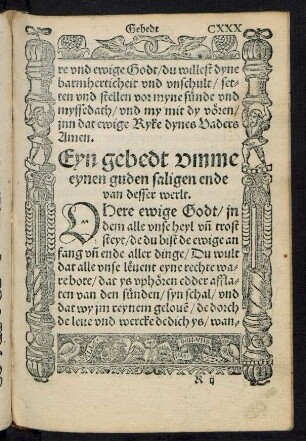 Gebedt CXXX
re vnd ewige Godt/du willest dyne
barmherticheit vnd vnschult/set-
ten vnd stellen vor myne sünde vnd
myssedath/vnd my mit dy vören/
jnn dat ewige Ryke dynes Vaders
Amen.
Eyn gebedt vmme
eynen guden saligen ende
van desser werlt.
O Here ewige Godt/jn
dem alle vnse heyl vñ trost
steyt/de du bist de ewige an
fang vñ ende aller dinge/Du wult
dat alle vnse leuent eyne rechte wa-
re bote/dat ys vphören edder affla-
ten van den sünden/syn schal/vnd
dat wy jm reynem gelouẽ/de dorch
de leue vnd wercke dedich ys/wan-
R ij